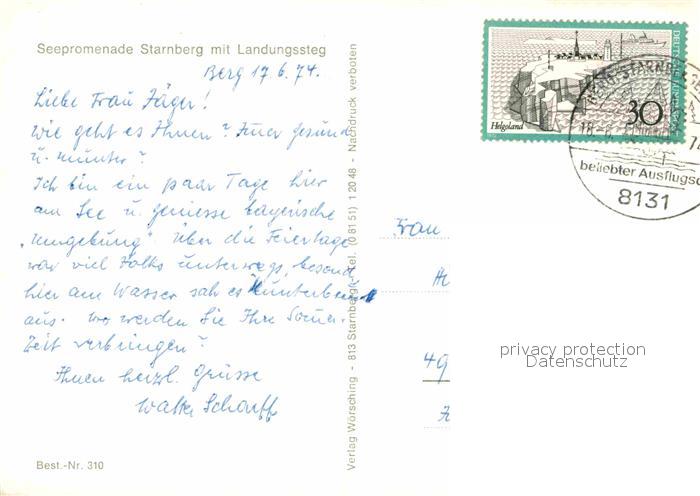 Seepromenade Starnberg mit Landungssteg
Berg 17.6.74.
Liebe Frau Jäger!
Wie geht es Ihnen? Immer gesund
u. munter?
Ich bin ein paar Tage hier
am See u. geniesse bayerische
„Umgebung". Über die Feiertage
war viel Volks unterwegs, besond.
hier am Wasser sah es kunterbunt
aus. Wo werden Sie Ihre Sommer-
Zeit verbringen?
Ihnen herzl. Grüsse
Walter Scharff
Best.-Nr. 310
Verlag Wörsching - 813 Starnberg - Tel. (0 81 51) 1 20 48 - Nachdruck verboten
DEUTSCHE BUNDESPOST
30
Helgoland
STARNBERG
18.6.
74
beliebter Ausflugso
8131
Frau
49
privacy protection
Datenschutz